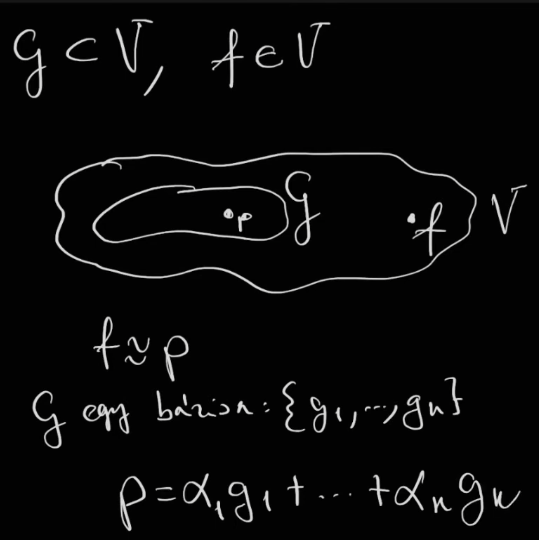 G ⊂ V, f ∈ V
p G f V
f ≈ p
G egy bázisa: {g₁, ..., gₙ}
p = α₁g₁ + ... + αₙgₙ